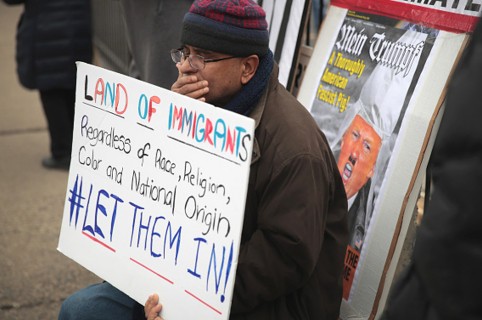 LAND OF IMMIGRANTS
Regardless of Race, Religion,
Color and National Origin
#LET THEM IN!
Mein Trumpf
A Thoroughly
American
Fascist Pig!